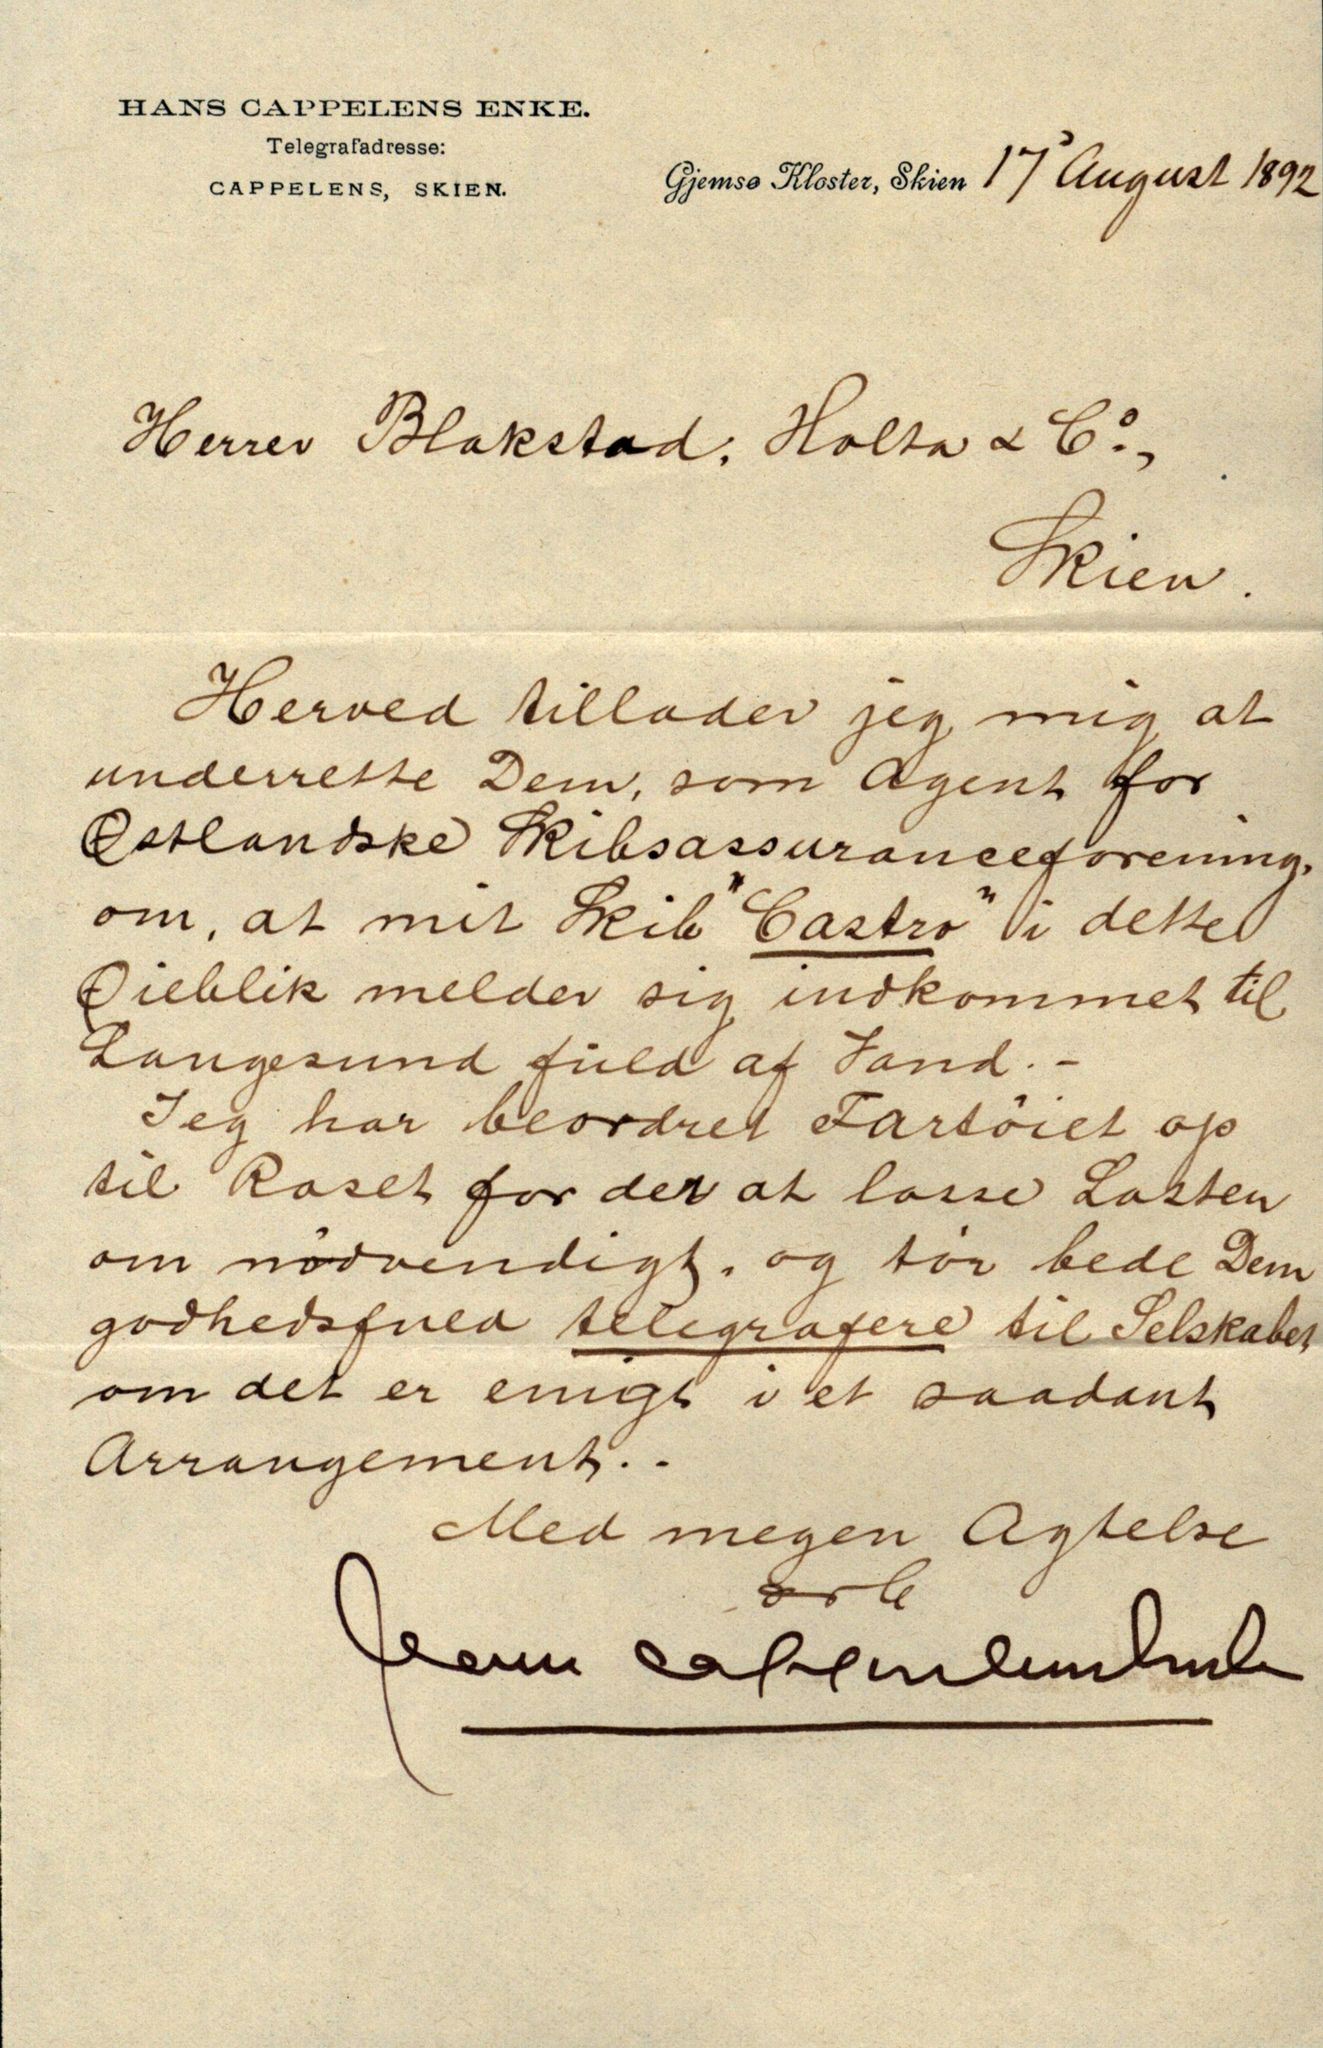 HANS CAPPELENS ENKE.
Telegrafadresse:
CAPPELENS, SKIEN.
Gjemsø Kloster, Skien 17 August 1892
Herrer Blakstad, Holta & Co.,
Skien.
Herved tillader jeg mig at
underrette Dem, som Agent for
Østlandske Skibsassuranceforening,
om, at mit Skib "Castro" i dette
Øieblik melder sig indkommet til
Langesund fuld af Vand. -
Jeg har beordret Fartöiet op
til Raset for der at losse Lasten
om nödvendigt, og tör bede Dem
godhedsfuld telegrafere til Selskabet
om det er enigt i et saadant
Arrangement. -
Med megen Agtelse